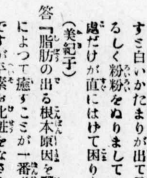 すと白いかたまりが出て
るしく粉粉をぬりまして
處だけが直にはけて困り
(美紀子)
答『脂肪の出る根本原因を
によつて癒すことが一番
ですが
お化粧をなさ